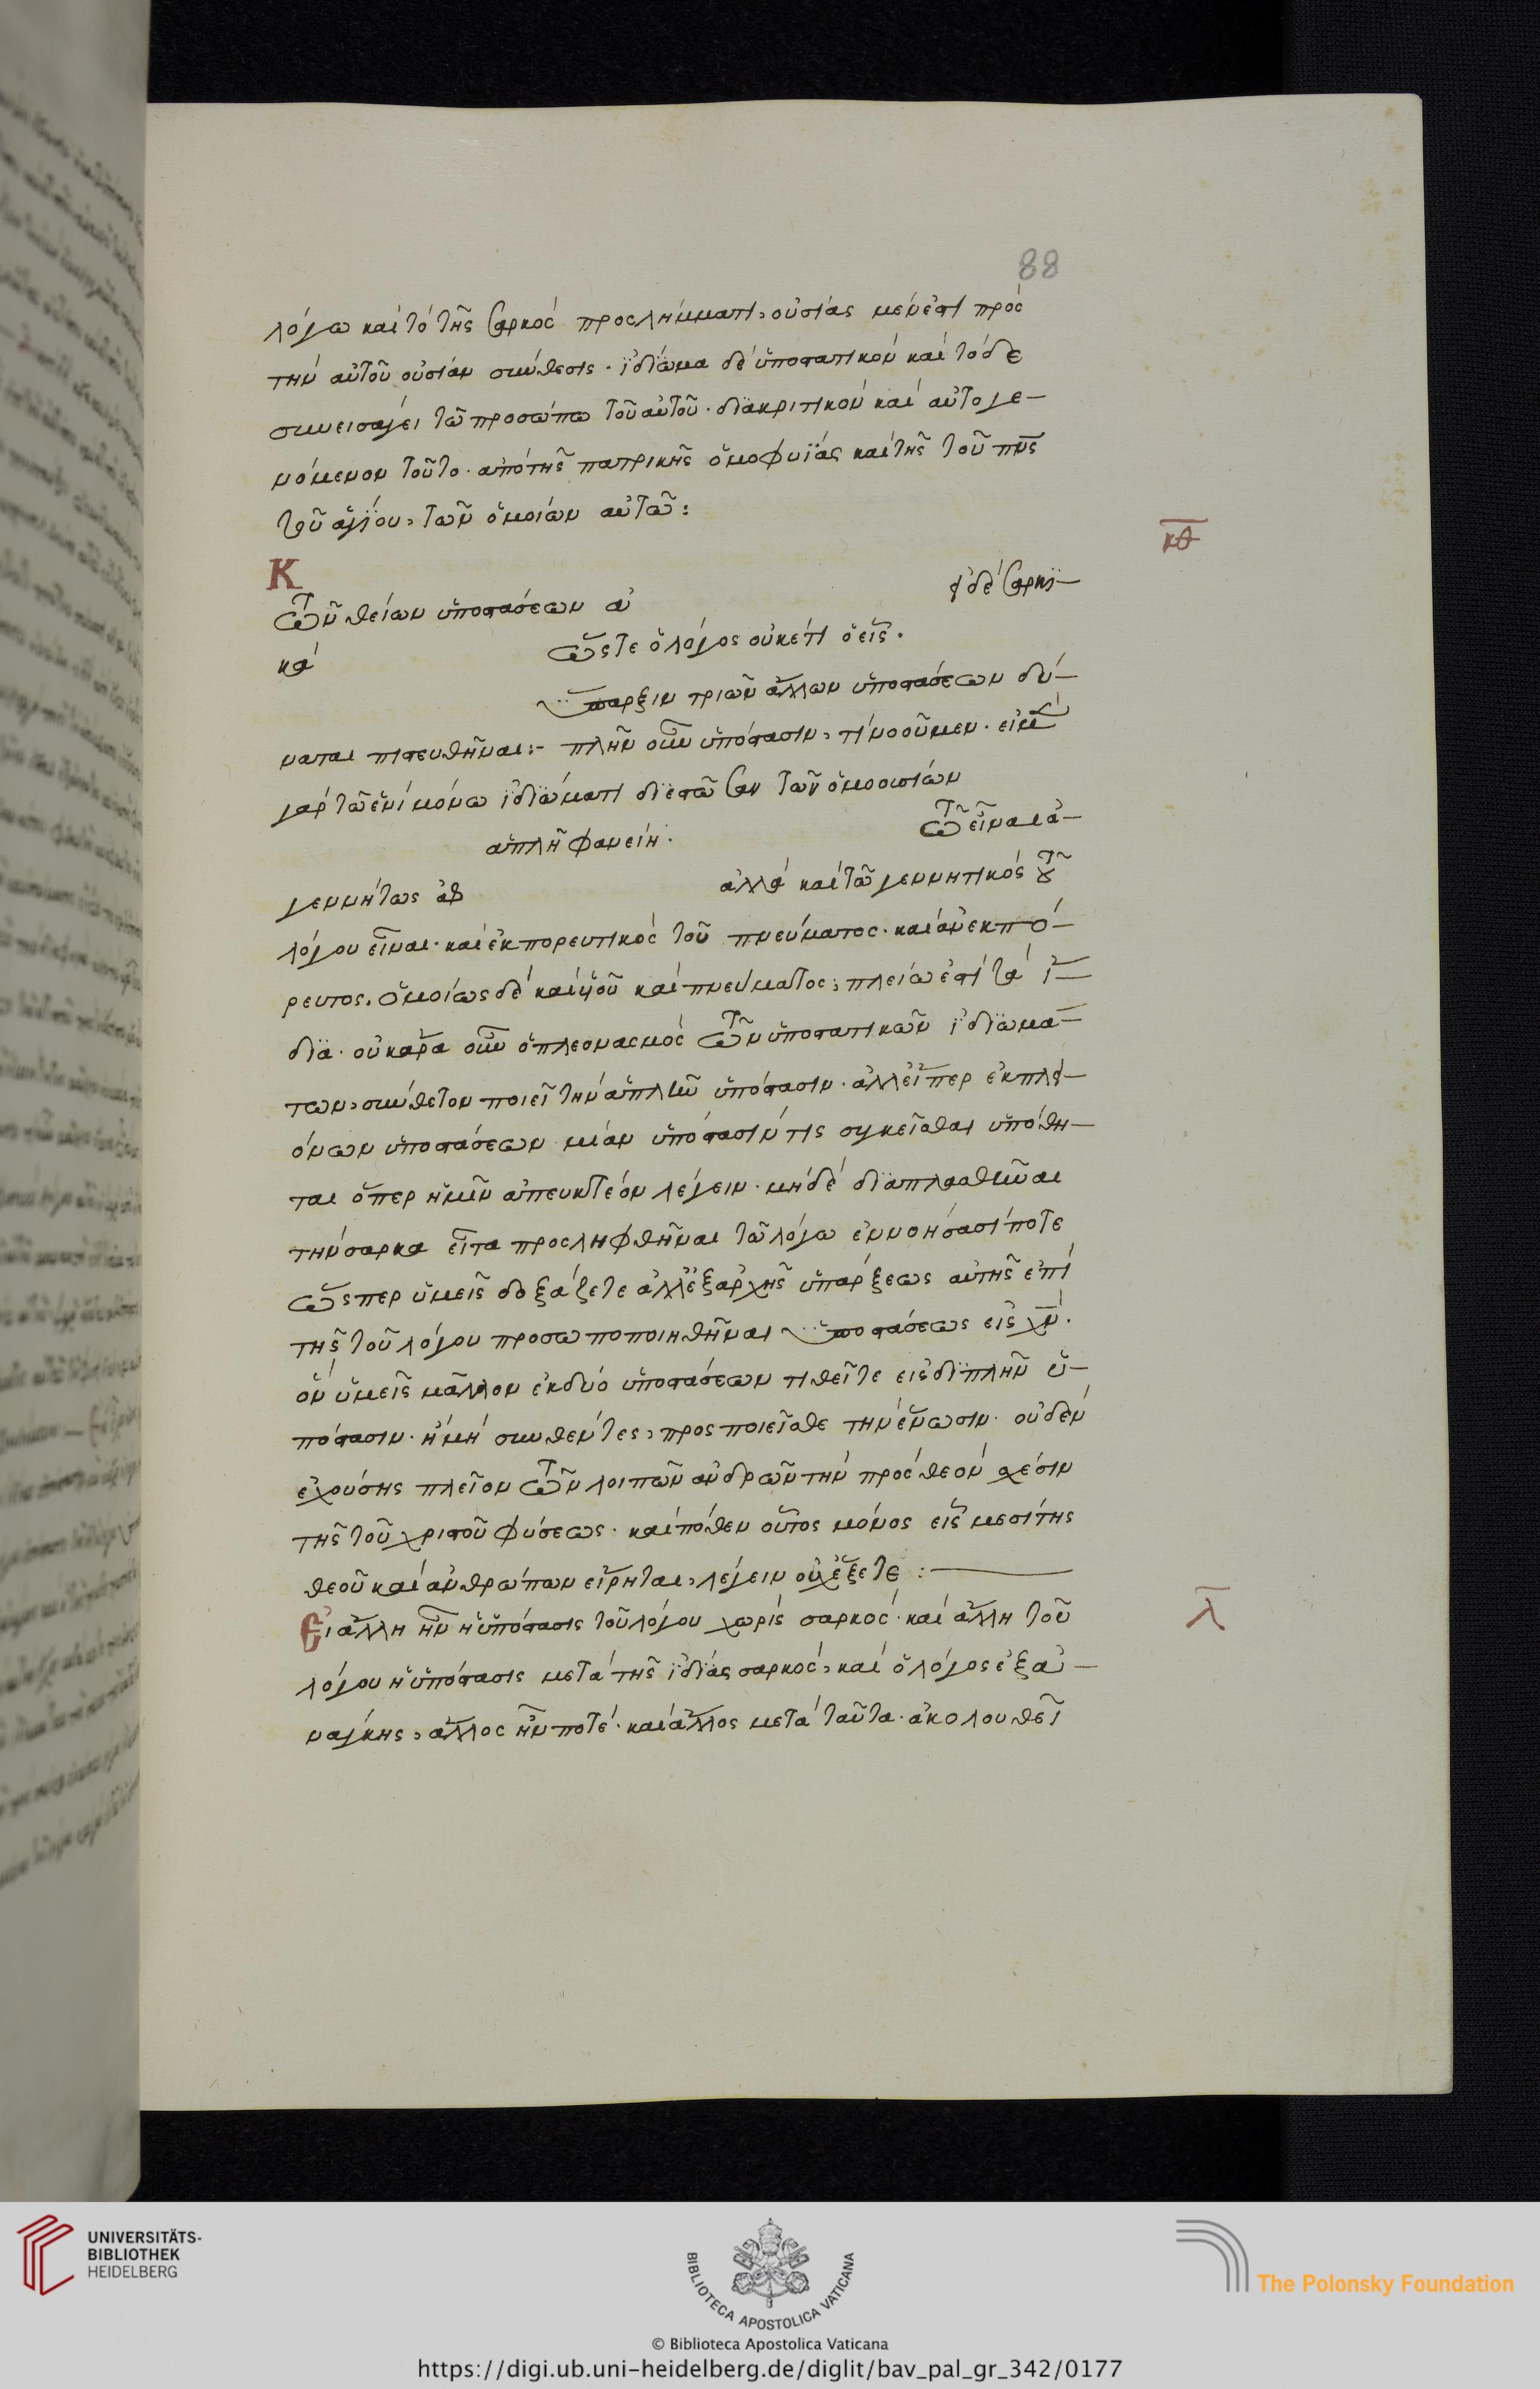 88
λόγω καὶ τὸ τῆς σαρκὸς προσλήμματι, οὐσίας μέν ἐστι πρὸς
τὴν αὐτοῦ οὐσίαν σύνθεσις· ἰδίωμα δὲ ὑποστατικὸν καὶ τόδε
συνεισάγει τῶ προσώπω τοῦ αὐτοῦ· διακριτικὸν καὶ αὐτὸ γε-
νόμενον τοῦτο· ἀπὸ τῆς πατρικῆς ὁμοφυΐας καὶ τῆς τοῦ πνς
τοῦ ἁγίου, τῶν ὁμοιων αὐτῶ:
κθ
Κ
τῶν θείων ὑποστάσεων
ὁ δὲ σαρκι-
κα
ὥστε ὁ λόγος οὐκέτι ὁ εἷς.
ὕπαρξιν τριῶν ἄλλων ὑποστάσεων δύ-
ναται πιστευθῆναι:- πλὴν οὖν ὑπόστασιν, τί νοοῦμεν· εἰ μὲν
γὰρ τῶ ἑνὶ μόνω ἰδιώματι διεστῶσαν τῶν ὁμοουσίων
ἁπλῆ φανείη.
τῶ εἶναι ἀ-
γεννήτως
ἀλλὰ καὶ τῶ γεννητικὸς τοῦ
λόγου εἶναι· καὶ ἐκπορευτικὸς τοῦ πνεύματος· καὶ ἀνεκπό-
ρευτος. ὁμοίως δὲ καὶ υἱοῦ καὶ πνεύματος, πλείω ἐστὶ τὰ ἴ-
δια· οὐκ ἄρα οὖν ὁ πλεονασμὸς τῶν ὑποστατικῶν ἰδιωμά-
των, σύνθετον ποιεῖ τὴν ἁπλῆν ὑπόστασιν· ἀλλ' εἴπερ ἐκ πλει-
όνων ὑποστάσεων μίαν ὑπόστασιν τὶς συγκεῖσθαι ὑπόθη-
ται ὅπερ ἡμῖν ἀπευκτέον λέγειν· μηδὲ διαπλασθῆναι
τὴν σάρκα εἶτα προσληφθῆναι τῶ λόγω ἐννοήσασί ποτε
ὥσπερ ὑμεῖς δοξάζετε ἀλλ' ἐξ ἀρχῆς ὑπάρξεως αὐτῆς ἐπὶ
τῆς τοῦ λόγου προσωποποιηθῆναι ὑποστάσεως εἰς χν.
ὃν ὑμεῖς μᾶλλον ἐκ δύο ὑποστάσεων τιθεῖτε εἰς διπλῆν ὑ-
πόστασιν· ἢ μὴ συνθέντες, προσποιεῖσθε τὴν ἕνωσιν· οὐδὲν
ἐχούσης πλεῖον τῶν λοιπῶν ἀνδρῶν τὴν πρὸς θεὸν σχέσιν
τῆς τοῦ χριστοῦ φύσεως· καὶ πόθεν οὗτος μόνος εἷς μεσίτης
θεοῦ καὶ ἀνθρώπων εἴρηται, λέγειν οὐχ ἕξετε :
λ
Εἰ ἄλλη ἦν ἡ ὑπόστασις τοῦ λόγου χωρὶς σαρκὸς· καὶ ἄλλη τοῦ
λόγου ἡ ὑπόστασις μετὰ τῆς ἰδίας σαρκὸς, καὶ ὁ λόγος ἐξ ἀ-
νάγκης, ἄλλος ἦν ποτὲ· καὶ ἄλλος μετὰ ταῦτα· ἀκολουθεῖ
UNIVERSITÄTS-
BIBLIOTHEK
HEIDELBERG
BIBLIOTECA APOSTOLICA VATICANA
The Polonsky Foundation
© Biblioteca Apostolica Vaticana
https://digi.ub.uni-heidelberg.de/diglit/bav_pal_gr_342/0177